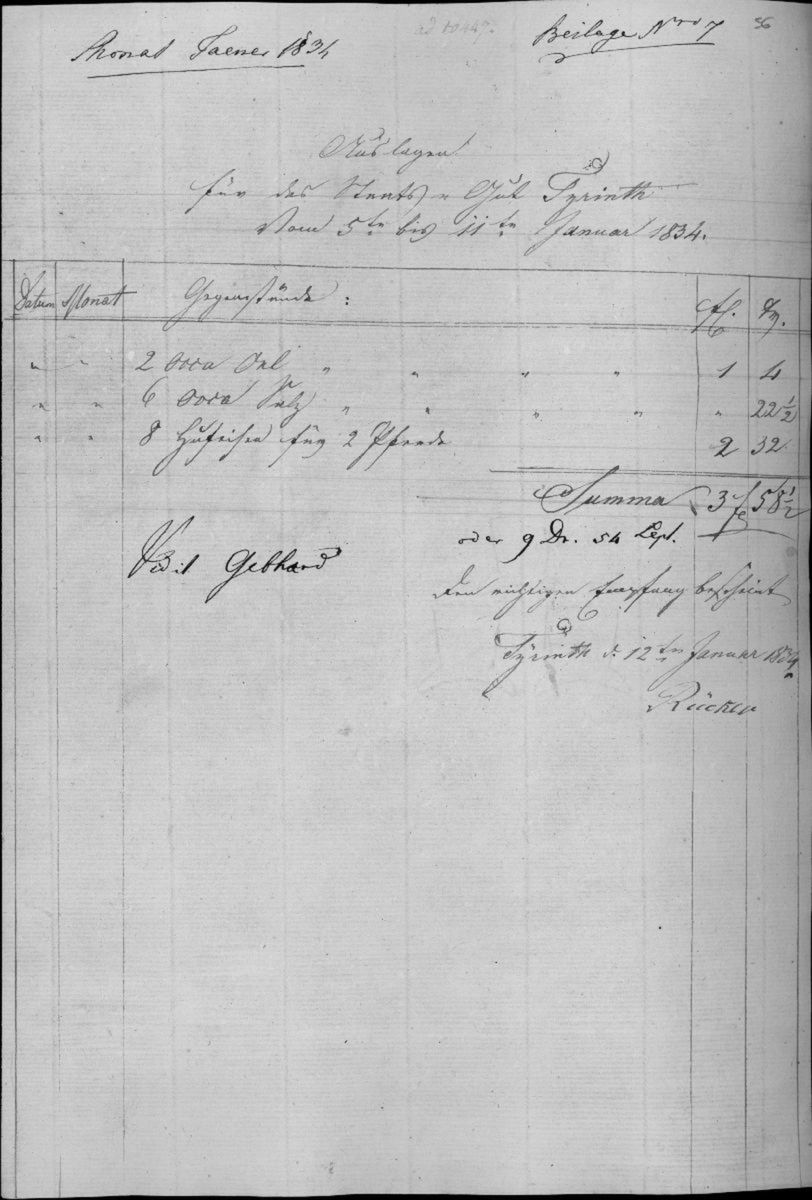 Monat Jaener 1834
ad 10447.
Beilage Nro 7
Auslagen
für das Staats-Gut Tyrinth
Vom 5ten bis 11ten Januar 1834.
Datum Monat Gegenstände: fl. xr.
" " 2 occa Oel " " " " 1 4
" " 6 occa Salz " " " " " 22 1/2
" " 8 Hufeisen für 2 Pferde 2 32
Summa 3 f 58 1/2
oder 9 Dr. 54 Lept.
Vidit Gebhard
Den richtigen Empfang bescheint
Tyrinth d. 12ten Januar 1834
Rücker